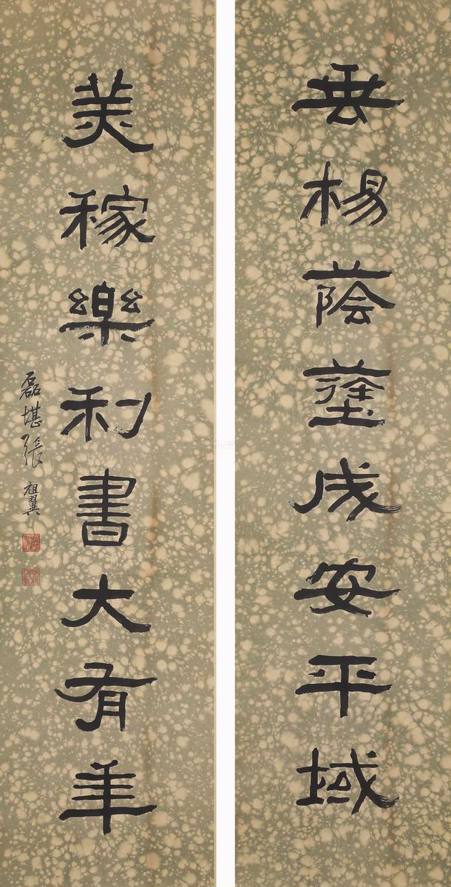 垂楊蔭蓥成安平域
美稼樂利書大有年
磊堪張祖翼